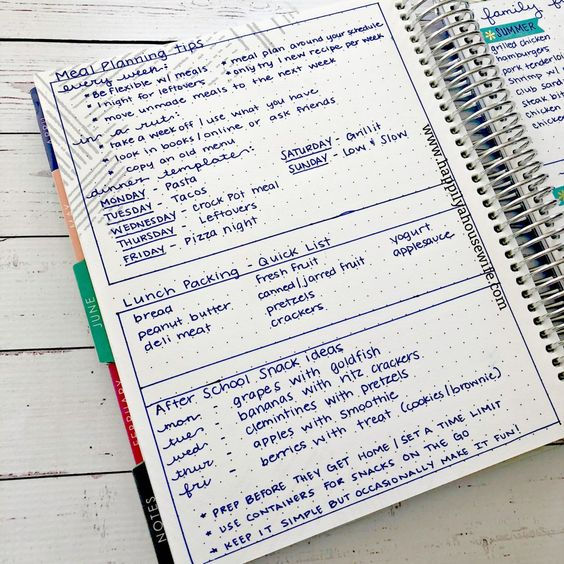 Meal Planning Tips
every week:
* Be flexible w/ meals * meal plan around your schedule
* 1 night for leftovers * only try 1 new recipe per week
* move unmade meals to the next week
in a rut:
* take a week off / use what you have
* look in books / online or ask friends
* copy an old menu
dinner template:
MONDAY - Pasta
TUESDAY - Tacos
WEDNESDAY - Crock Pot meal
THURSDAY - Leftovers
FRIDAY - Pizza night
SATURDAY - Grill it
SUNDAY - Low & Slow
Lunch Packing - Quick List
bread
peanut butter
deli meat
fresh fruit
canned/jarred fruit
pretzels
crackers
yogurt
applesauce
After School Snack ideas
mon - grapes with goldfish
tues - bananas with ritz crackers
wed - clemintines with pretzels
thur - apples with smoothie
fri - berries with treat (cookies/brownie)
* PREP BEFORE THEY GET HOME / SET A TIME LIMIT
* USE CONTAINERS FOR SNACKS ON THE GO
* KEEP IT SIMPLE BUT OCCASIONALLY MAKE IT FUN!
www.happilyahousewife.com
JUNE
FEBRUARY
NOTES
family
SUMMER
grilled chicken
hamburgers
pork tenderloi
shrimp w/
club sand
steak bit
chicken
chicke